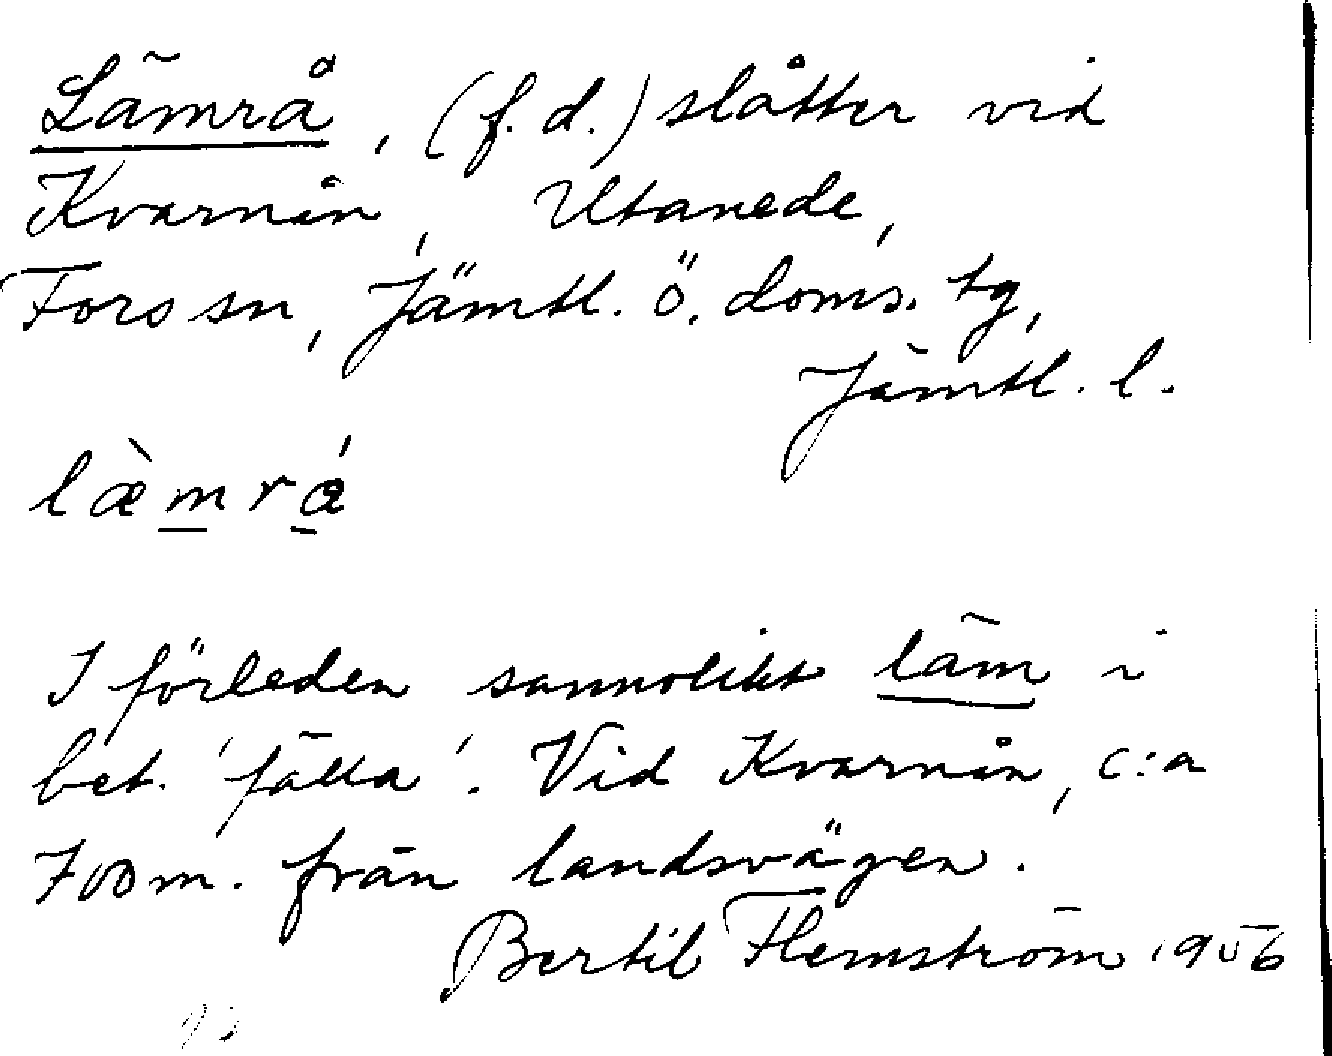 Lämrå, (f.d.) slåtter vid
Kvarnån, Utanede,
Fors sn, Jämtl. ö. doms. tg,
Jämtl. l.
læ̀m̲rǻ̲
I förleden sannolikt läm i
bet. 'fälla'. Vid Kvarnån, c:a
700 m. från landsvägen.
Bertil Flemström 1956